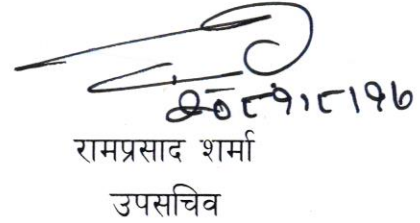 २०८१।८।१७
रामप्रसाद शर्मा
उपसचिव